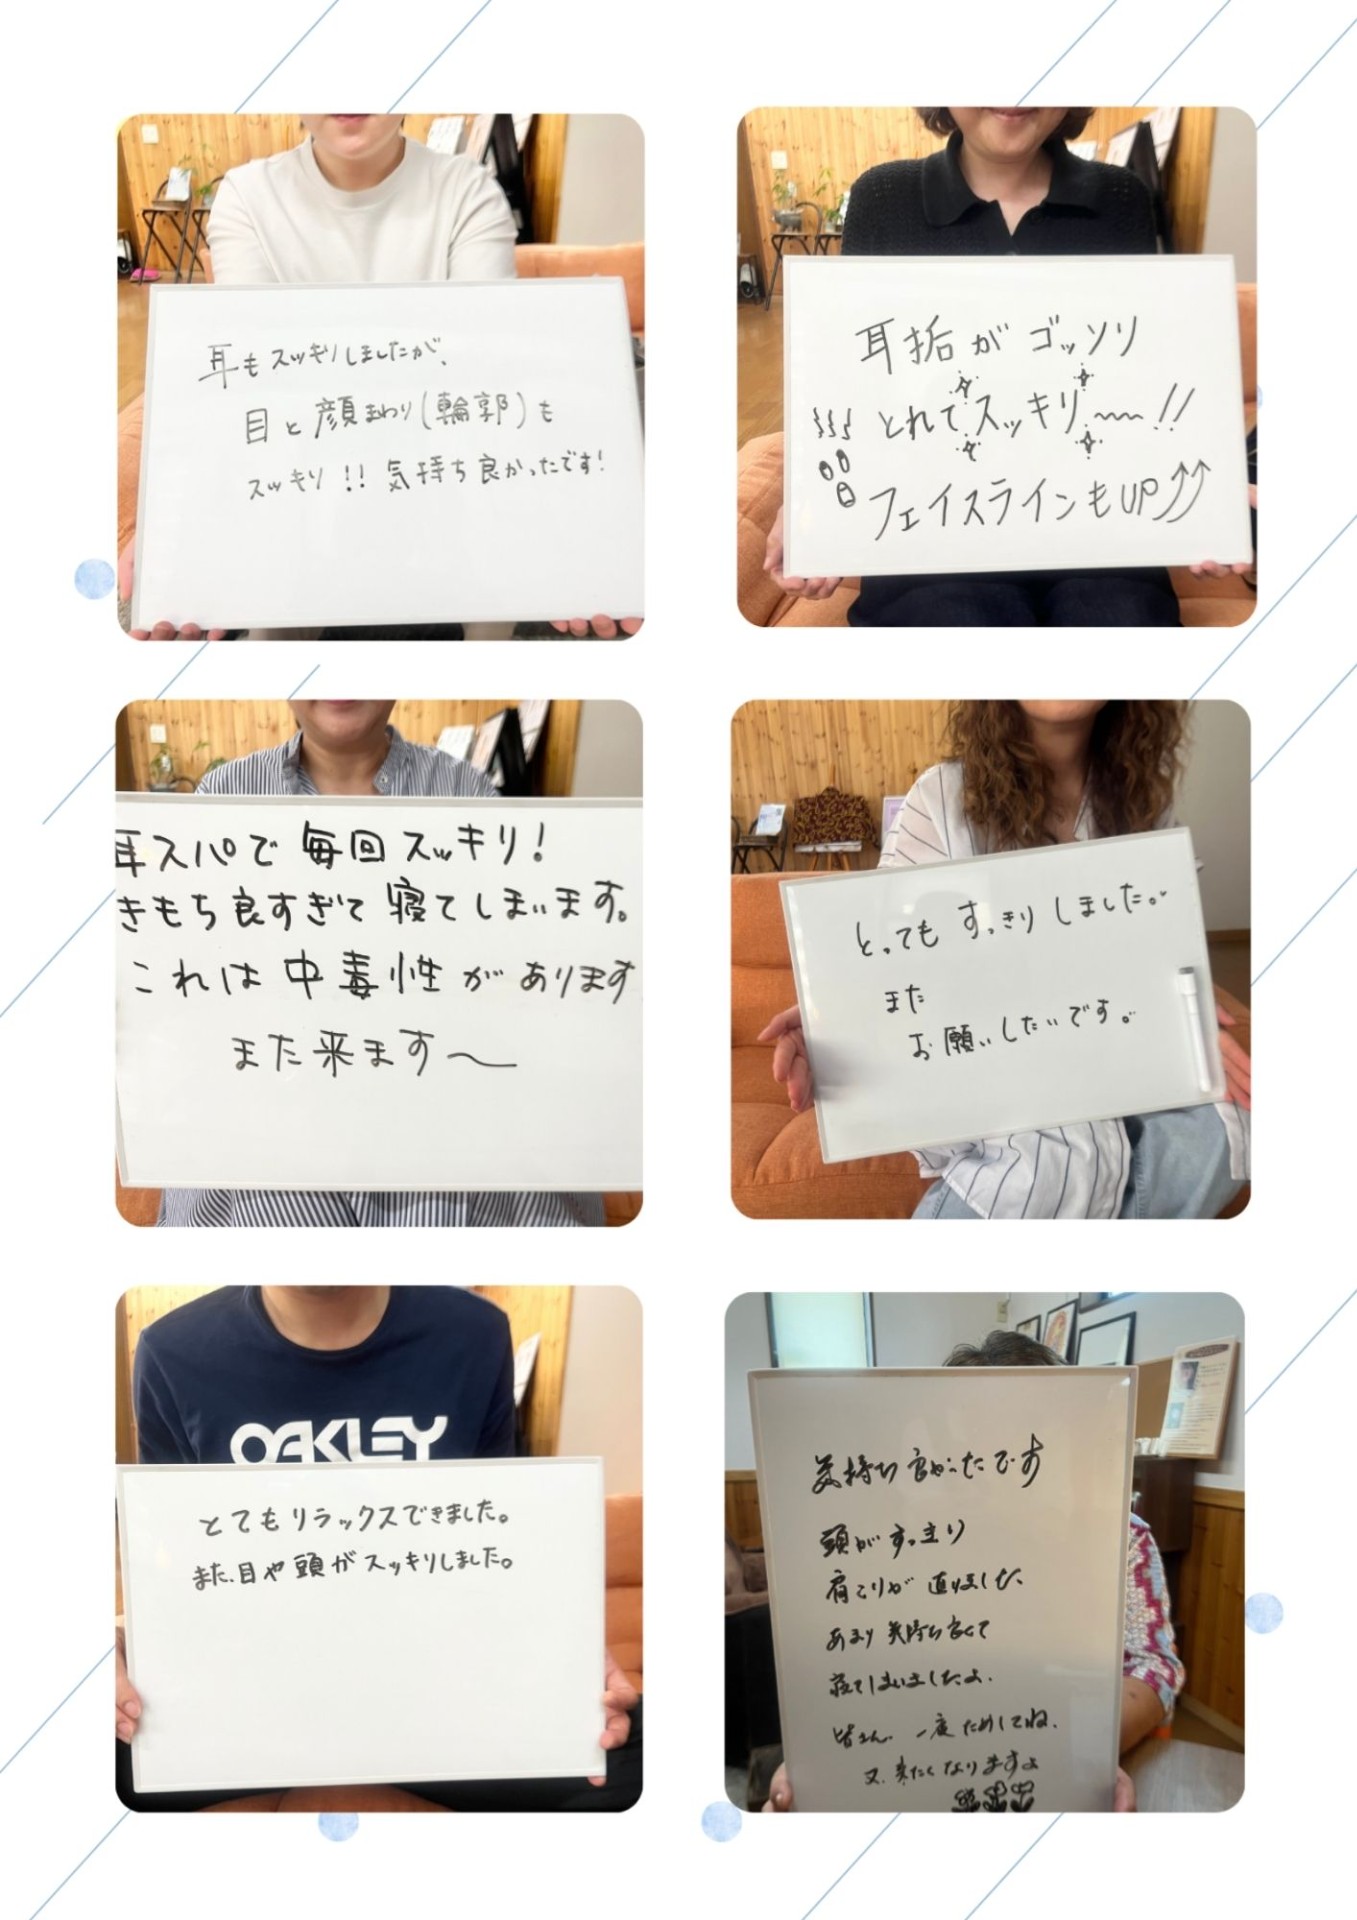 耳もスッキリしましたが、
目と顔まわり(輪郭)も
スッキリ!!気持ち良かったです!
耳垢がゴッソリ
とれてスッキリ〜〜!!
フェイスラインもUP⤴⤴
耳スパで毎回スッキリ!
きもち良すぎて寝てしまいます。
これは中毒性があります
また来ます〜
とってもすっきりしました。
また
お願いしたいです。
OAKLEY
とてもリラックスできました。
また、目や頭がスッキリしました。
気持ち良かったです
頭がすっきり
肩こりが直りました
あまり気持ち良くて
寝てしまいましたよ.
皆さん、一度ためしてね.
又、来たくなりますよ